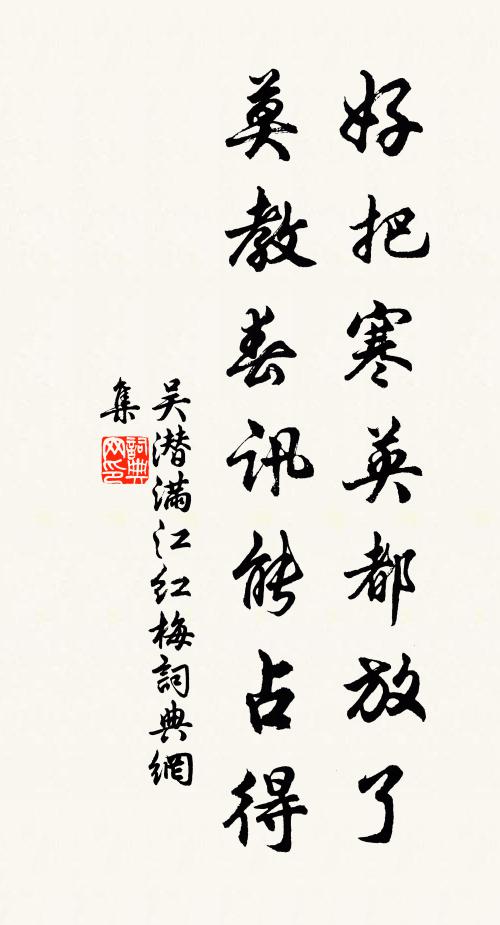 好把寒英都放了
莫教春讯能占得
吴潜满江红梅詞典網
集
詞典网印